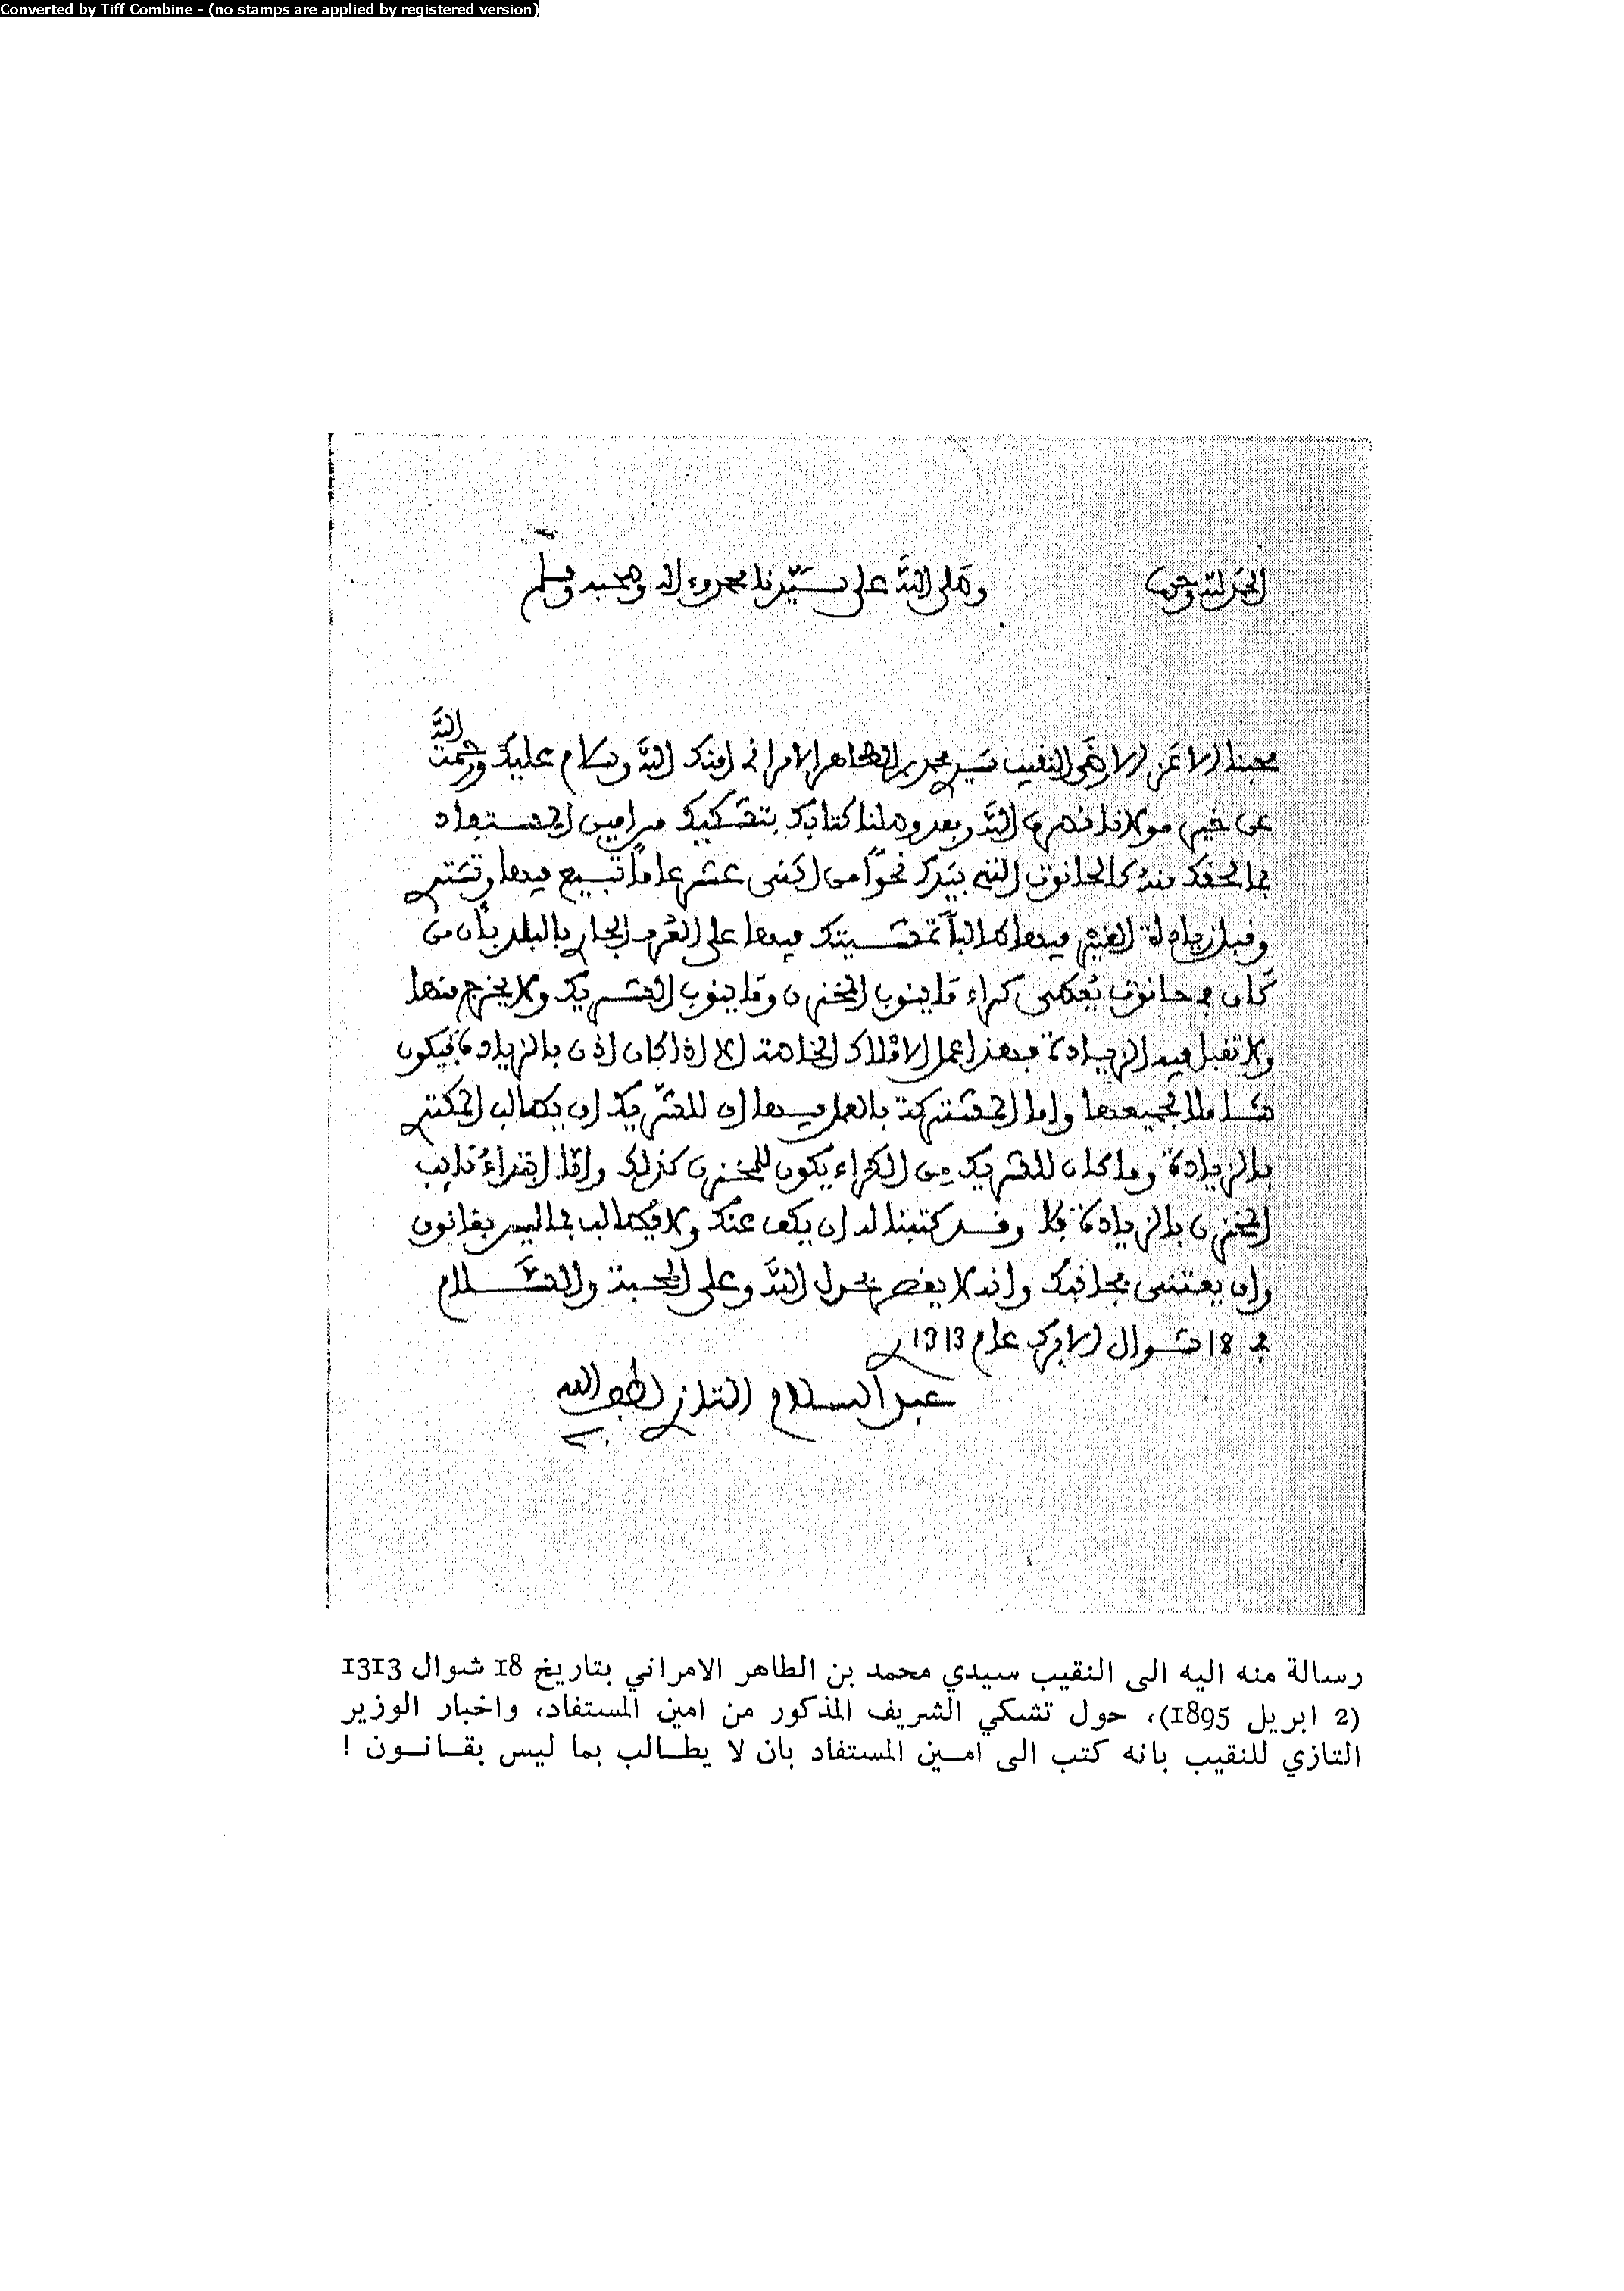 Converted by Tiff Combine - (no stamps are applied by registered version)
الحمد لله وحده
وصلى الله على سيدنا محمد وءاله وصحبه وسلم
محبنا الاعز الارضى النقيب سيدي محمد بن الطاهر الامراني امنك الله وسلام عليك ورحمت الله
عن خير مولانا نصره الله وبعد وصلنا كتابك بتشكيك من امين المستفاد
بما لحقك منه في الحانوت التي بيدك نحوا من اثنى عشر عاما تبيع فيها وتشتري
وقبل زيادة الغير فيها طالبا تمشيتك فيها على العرف الجاري بالبلد بأن من
كان في حانوت يعطى كراء ما ينوب المخزن وما ينوب الشريك ولا يخرج منها
ولا تقبل فيه الزيادة فهذا عمل الاملاك الخاصة الا اذا كان اذن بالزيادة فيكون
شاملا لجميعها واما المشتركة فالعمل فيها ان للشريك ان يطالب المكتري
بالزيادة وما كان للشريك من الكراء يكون للمخزن كذلك واما ابتداء نايب
المخزن بالزيادة فلا وقد كتبنا له ان يكف عنك ولا يطالب بما ليس بقانون
وان يعتنى بجانبك وانه لا يقصر بحول الله وعلى المحبة والسلام
في 18 شوال الابرك عام 1313
عبد السلام التازي لطف الله به
رسالة منه اليه الى النقيب سيدي محمد بن الطاهر الامراني بتاريخ 18 شوال 1313
(2 ابريل 1895)، حول تشكي الشريف المذكور من امين المستفاد، واخبار الوزير
التازي للنقيب بانه كتب الى امين المستفاد بان لا يطالب بما ليس بقانون !